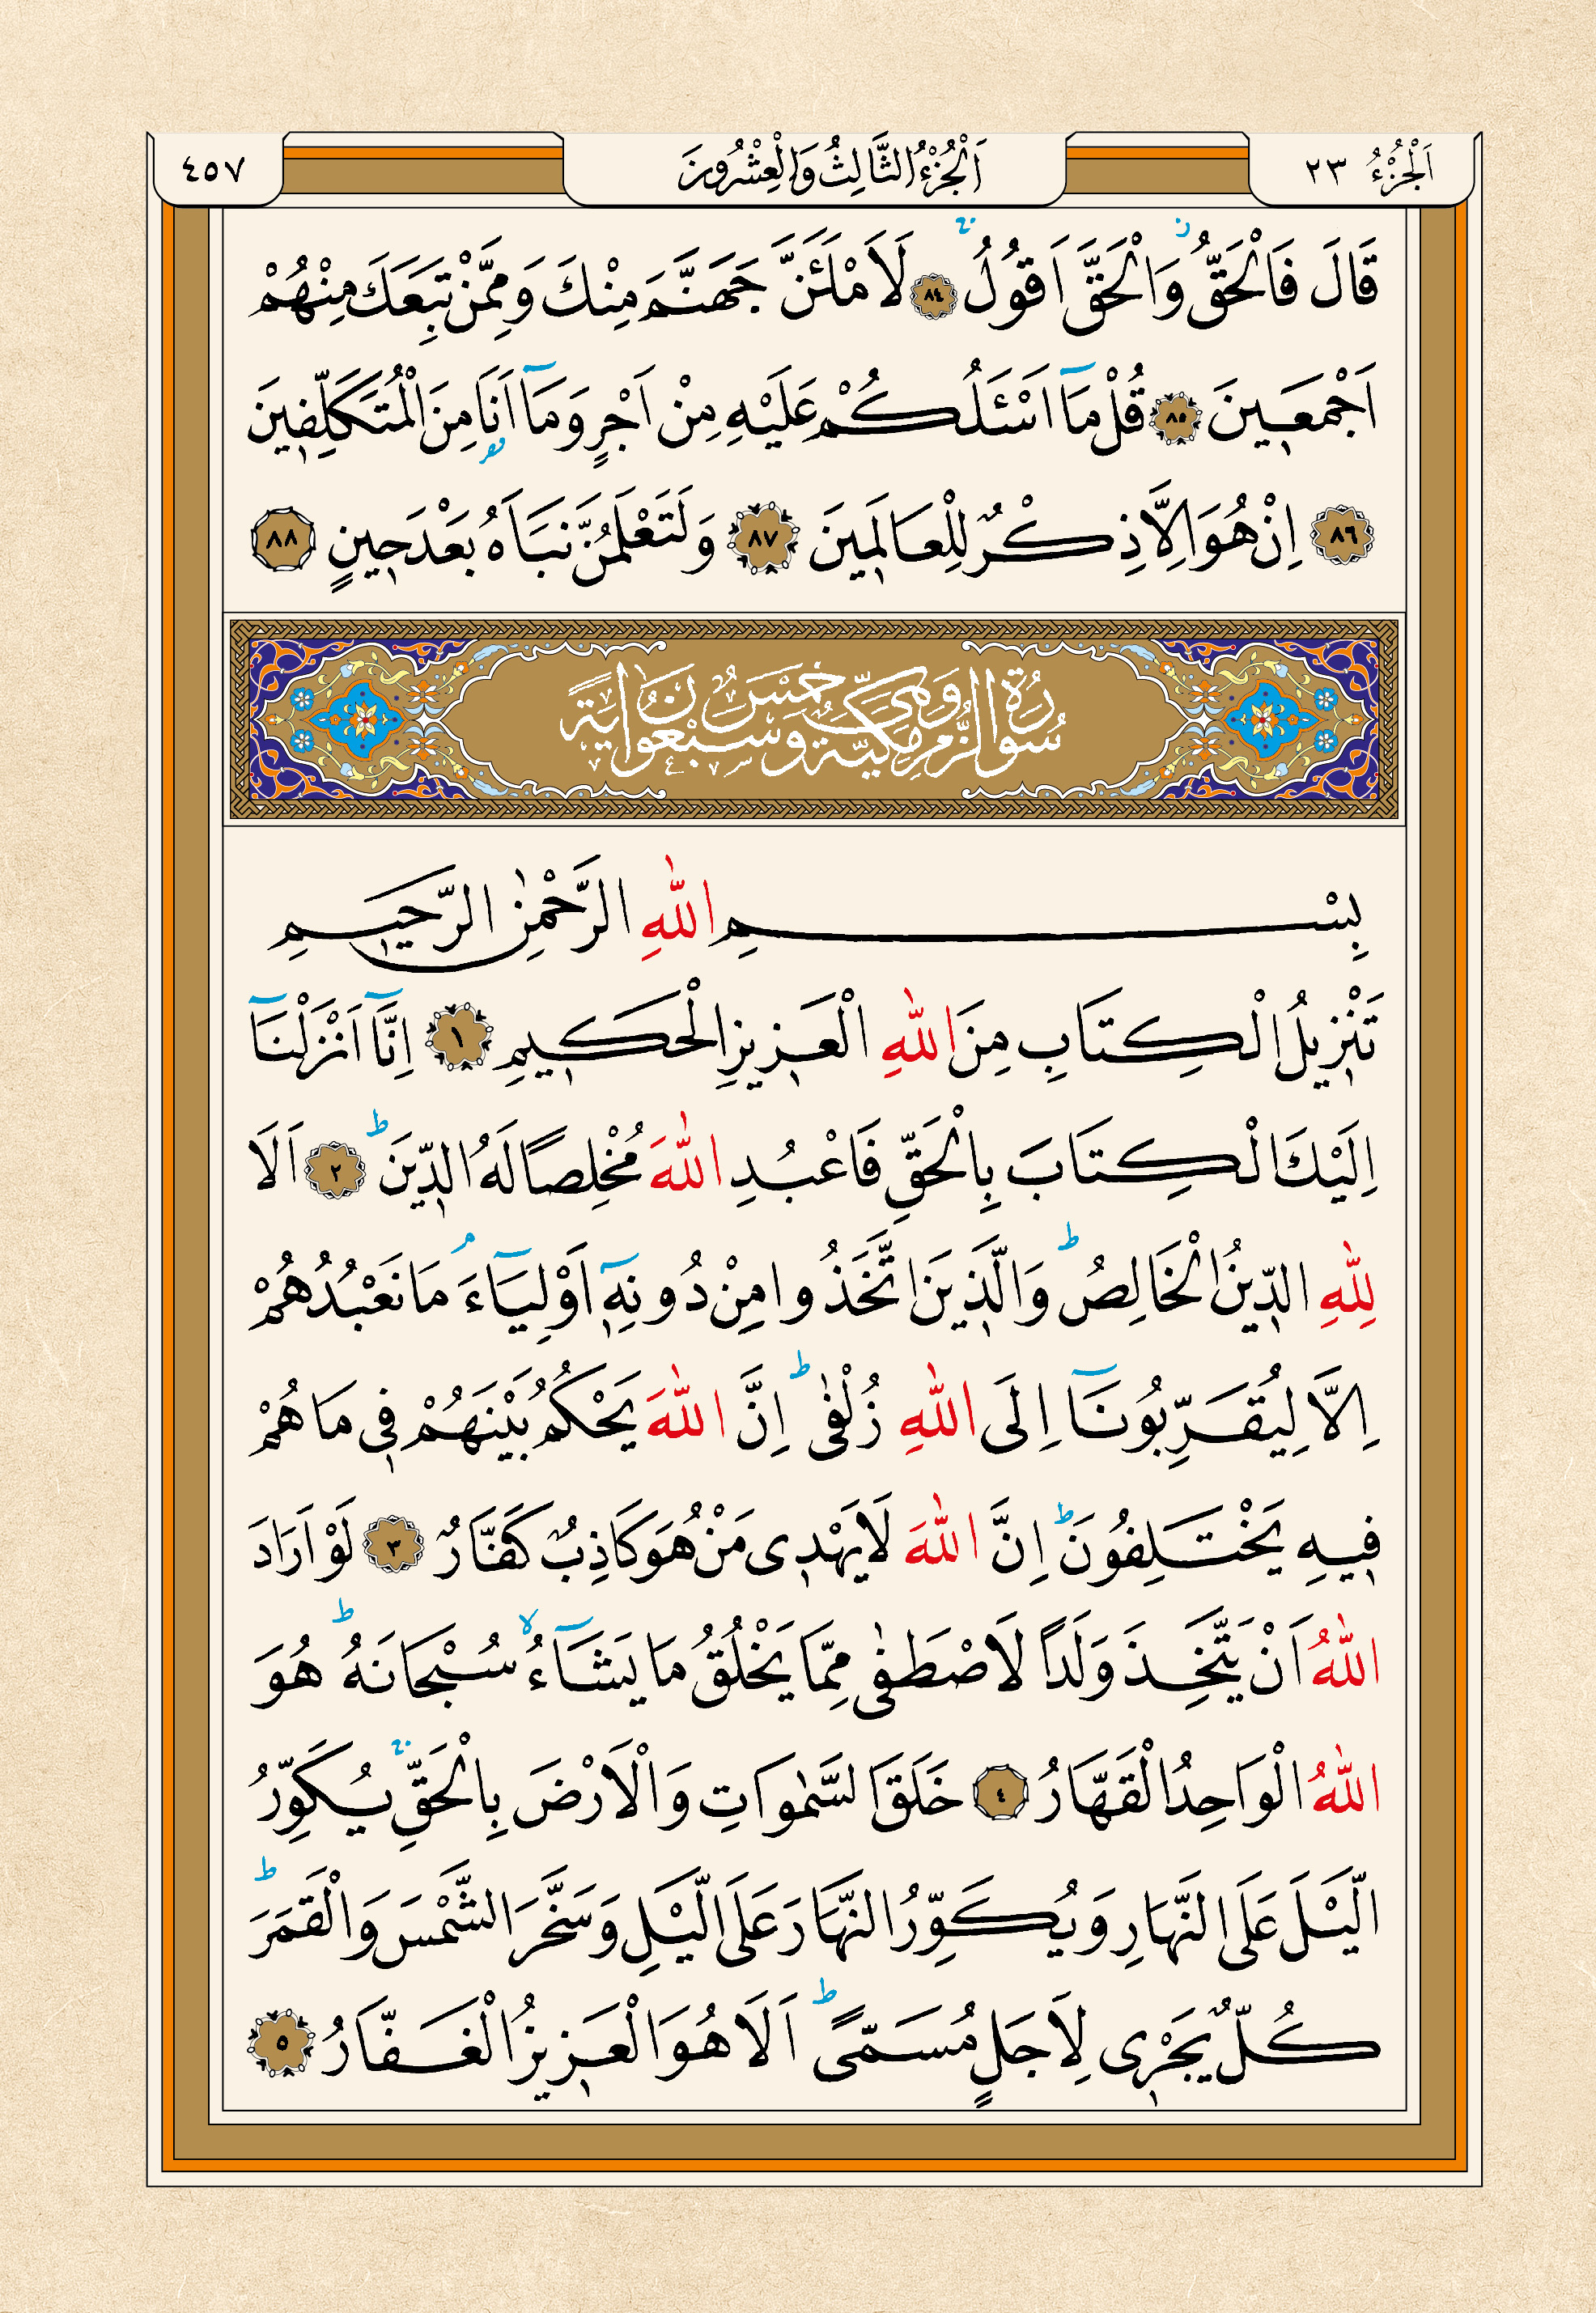 اَلْجُزْءُ ٢٣
اَلْجُزْءُ الثَّالِثُ وَالْعِشْرُونَ
٤٥٧
قَالَ فَالْحَقُّۘ وَالْحَقَّ اَقُولُۚ ﴿٨٤﴾ لَاَمْلَـَٔنَّ جَهَنَّمَ مِنْكَ وَمِمَّنْ تَبِعَكَ مِنْهُمْ
اَجْمَع۪ينَ ﴿٨٥﴾ قُلْ مَٓا اَسْـَٔلُكُمْ عَلَيْهِ مِنْ اَجْرٍ وَمَٓا اَنَا۬ مِنَ الْمُتَكَلِّف۪ينَ
﴿٨٦﴾ اِنْ هُوَ اِلَّا ذِكْرٌ لِلْعَالَم۪ينَ ﴿٨٧﴾ وَلَتَعْلَمُنَّ نَبَاَهُ بَعْدَ ح۪ينٍ ﴿٨٨﴾
سُورَةُ الزُّمَرِ مَكِّيَّةٌ وَهِيَ خَمْسٌ وَسَبْعُونَ اٰيَةً
بِسْمِ اللّٰهِ الرَّحْمٰنِ الرَّح۪يمِ
تَنْز۪يلُ الْكِتَابِ مِنَ اللّٰهِ الْعَز۪يزِ الْحَك۪يمِ ﴿١﴾ اِنَّٓا اَنْزَلْنَٓا
اِلَيْكَ الْكِتَابَ بِالْحَقِّ فَاعْبُدِ اللّٰهَ مُخْلِصًا لَهُ الدّ۪ينَۜ ﴿٢﴾ اَلَا
لِلّٰهِ الدّ۪ينُ الْخَالِصُۜ وَالَّذ۪ينَ اتَّخَذُوا مِنْ دُونِه۪ٓ اَوْلِيَٓاءَۢ مَا نَعْبُدُهُمْ
اِلَّا لِيُقَرِّبُونَٓا اِلَى اللّٰهِ زُلْفٰىۜ اِنَّ اللّٰهَ يَحْكُمُ بَيْنَهُمْ ف۪ي مَا هُمْ
ف۪يهِ يَخْتَلِفُونَۜ اِنَّ اللّٰهَ لَا يَهْد۪ي مَنْ هُوَ كَاذِبٌ كَفَّارٌ ﴿٣﴾ لَوْ اَرَادَ
اللّٰهُ اَنْ يَتَّخِذَ وَلَدًا لَاصْطَفٰى مِمَّا يَخْلُقُ مَا يَشَٓاءُۙ سُبْحَانَهُۜ هُوَ
اللّٰهُ الْوَاحِدُ الْقَهَّارُ ﴿٤﴾ خَلَقَ السَّمٰوَاتِ وَالْاَرْضَ بِالْحَقِّۚ يُكَوِّرُ
الَّيْلَ عَلَى النَّهَارِ وَيُكَوِّرُ النَّهَارَ عَلَى الَّيْلِ وَسَخَّرَ الشَّمْسَ وَالْقَمَرَۜ
كُلٌّ يَجْر۪ي لِاَجَلٍ مُسَمًّىۜ اَلَا هُوَ الْعَز۪يزُ الْغَفَّارُ ﴿٥﴾